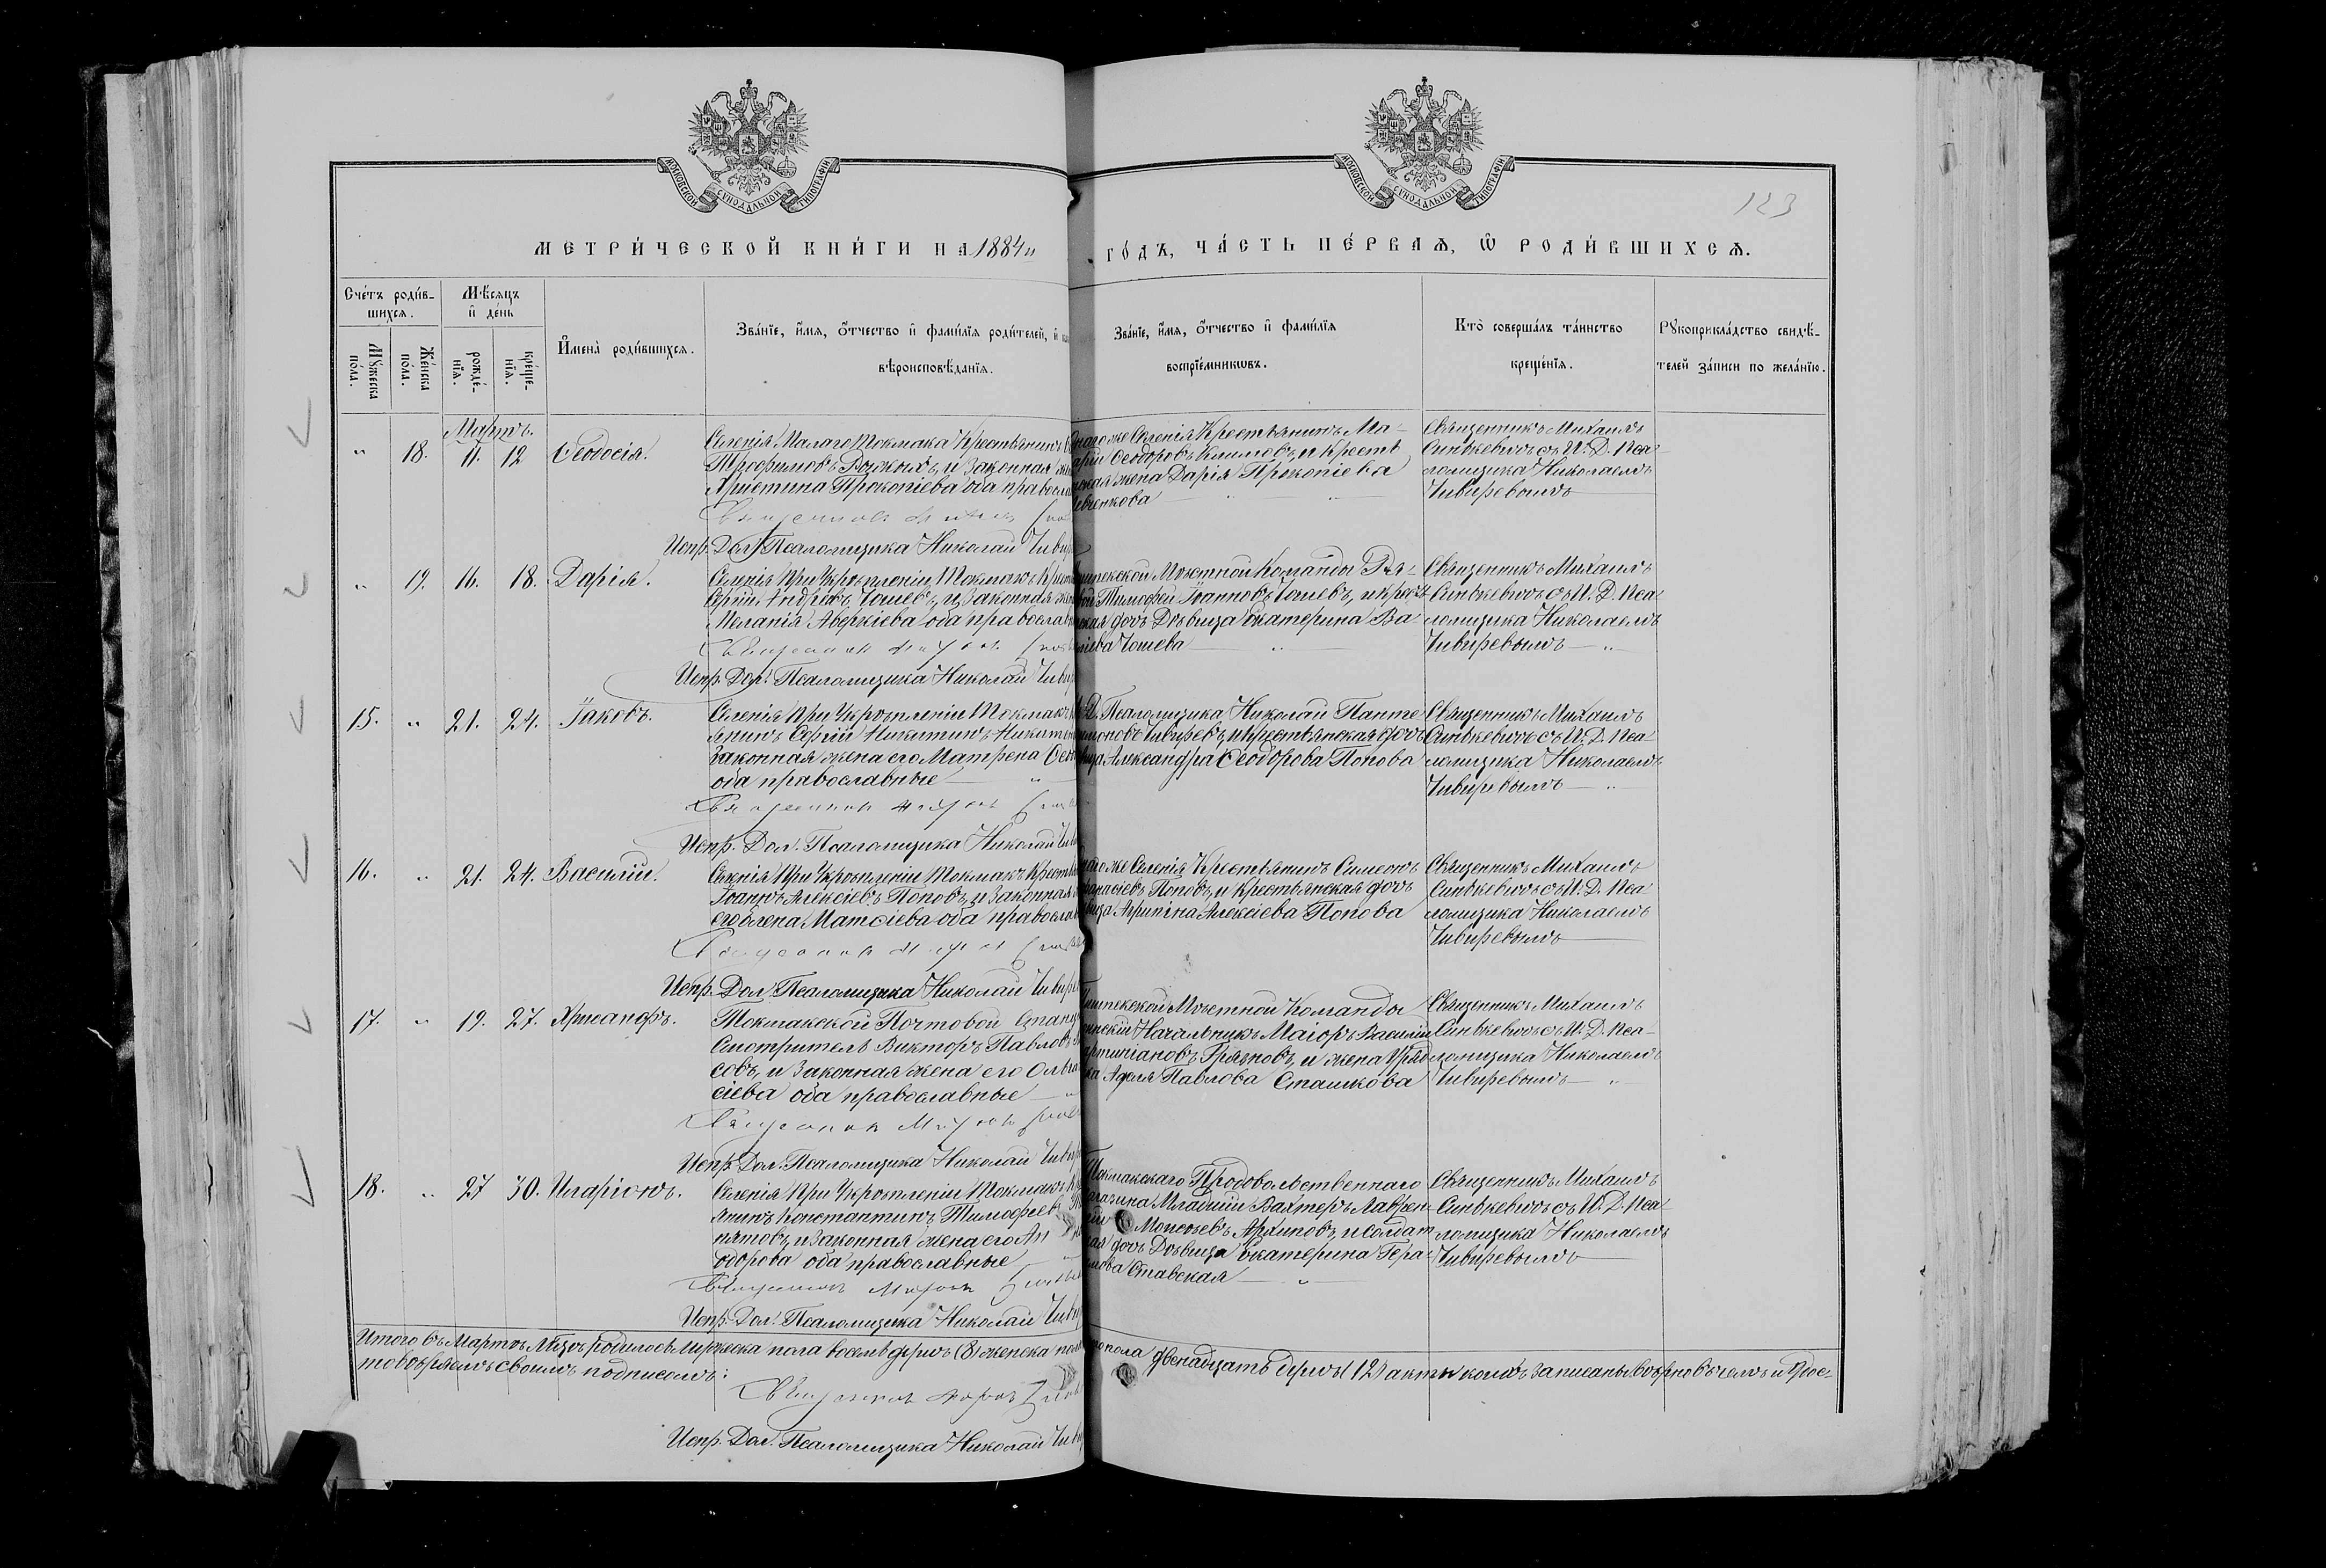 МОСКОВСКОЙ СѴНОДАЛЬНОЙ ТИПОГРАФІИ
МОСКОВСКОЙ СѴНОДАЛЬНОЙ ТИПОГРАФІИ
123
МЕТРИ́ЧЕСКОЙ КНИ́ГИ НА 1884 „ ГО́ДЪ, ЧА́СТЬ ПЕ́РВАѦ, Ѡ РОДИ́ВШИХСѦ.
Сче́тъ роди́вшихсѧ.
Мꙋ́жеска по́ла.
Же́нска по́ла.
Мѣ́сѧцъ и҆ де́нь
рожде́нїѧ.
креще́нїѧ.
И҆мена̀ роди́вшихсѧ.
Зва́нїе, и҆́мѧ, ѻ҆́тчество и҆ фами́лїѧ роди́телей, и҆
вѣроисповѣ́данїѧ.
Зва́нїе, и҆́мѧ, ѻ҆́тчество и҆ фами́лїѧ
воспрїе́мникѡвъ.
Кто̀ соверша́лъ та́инство
креще́нїѧ.
Рꙋкоприкла́дство свидѣ́-
телей за́писи по жела́нїю.
Мартъ.
„ 18. 11. 12 Ѳеодосія.
Селенія Малаго Токмака Крестьянинъ
Трофимовъ Рыжыхъ, и Законная
Христина Прокопіева оба
Священникъ
Испр. Дол. Псаломщика Николай
же Селенія Крестьянинъ Ма-
Ѳеодоровъ Климовъ, и Крестъ
жена Дарія Прокопіева
Священникъ Михаилъ
Синѣкевичъ съ И. Д. Пса-
ломщика Николаемъ
Чивиревымъ
„ 19. 16. 18. Дарія.
Селенія При Укрѣпленіи Токмакъ
Сергій Андреевъ Чошевъ, и Законная
Меланія Аверкіева оба
Священникъ
Испр. Дол. Псаломщика Николай
Мѣстной Команды Ря-
Тимофей Іоанновъ Чошевъ, и
дочь Дѣвица Екатерина Ва-
Чошева
Священникъ Михаилъ
Синѣкевичъ съ И. Д. Пса-
ломщика Николаемъ
Чивиревымъ „
15. „ 21. 24. Іаковъ.
Селенія При Укрѣпленіи Токмакъ
янинъ Сергій Никитинъ
Законная жена его Матрена
оба православные „
Священникъ
Испр. Дол. Псаломщика Николай
Псаломщика Николай Панте
Чивиревъ, и Крестьянская дочь
Александра Ѳеодорова Попова
Священникъ Михаилъ
Синѣкевичъ съ И. Д. Пса-
ломщика Николаемъ
Чивиревымъ „
16. „ 21. 24. Василій.
Селенія При Укрѣпленіи Токмакъ
Іоаннъ Алексіевъ Поповъ, и Законная
его Елена Матѳіева оба
Священникъ
Испр. Дол. Псаломщика Николай
же Селенія Крестьянинъ Симеонъ
Поповъ, и Крестьянская дочь
Агрипина Алексіева Попова
Священникъ Михаилъ
Синѣкевичъ съ И. Д. Пса-
ломщика Николаемъ
Чивиревымъ
17. „ 19. 27. Хрисанфъ.
Токмакской Почтовой
Смотритель Викторъ Павловъ
севъ, и Законная жена его
сіева оба православные
Священникъ
Испр. Дол. Псаломщика Николай
Мѣстной Команды
Начальникъ Маіоръ Василій
Грязновъ, и жена
Павлова Сташкова
Священникъ Михаилъ
Синѣкевичъ съ И. Д. Пса-
ломщика Николаемъ
Чивиревымъ „
18. „ 27 30. Иларіонъ.
Селенія При Укрѣпленіи Токмакъ
янинъ Константинъ Тимофеевъ
пятовъ, и Законная жена его
одорова оба православные
Священникъ
Испр. Дол. Псаломщика Николай
Токмакскаго Продовольственнаго
Младшій Вахтеръ Лаврен-
Моисеевъ Архиповъ, и Солдат
дочь Дѣвица Екатерина Гера-
Ставская „
Священникъ Михаилъ
Синѣкевичъ съ И. Д. Пса-
ломщика Николаемъ
Чивиревымъ
Итого въ Мартѣ М-цѣ родилось Мужеска пола восемь душъ (8) женска пола двенадцать душъ (12) акты коихъ записаны вѣрно въ чемъ и удос-
товѣряемъ своимъ подписомъ:
Священникъ
Испр. Дол. Псаломщика Николай